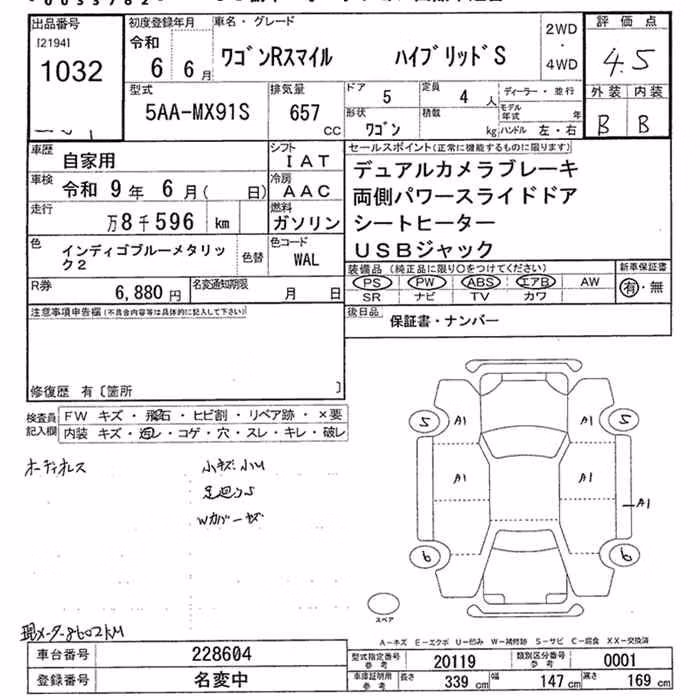 出品番号
[2194]
1032
初度登録年月
令和
6 6月
車名・グレード
ワゴンRスマイル ハイブリッドS
2WD
・
4WD
評価点
4.5
外装 内装
B B
型式
5AA-MX91S
排気量
657
CC
ドア
5
定員
4 人
形状
ワゴン
積載
kg
ディーラー・並行
モデル年式 年
ハンドル 左・右
車歴
自家用
シフト
IAT
車検
令和 9年 6月( 日)
冷房
AAC
走行
万8千596 km
燃料
ガソリン
色
インディゴブルーメタリック2
色替
色コード
WAL
R券
6,880円
名変通知期限
月 日
セールスポイント(正常に機能するものに限ります)
デュアルカメラブレーキ
両側パワースライドドア
シートヒーター
USBジャック
装備品 (純正品に限り○をつけてください)
PS PW ABS エアB AW
SR ナビ TV カワ
新車保証書
有・無
後日品
保証書・ナンバー
注意事項申告欄(不具合内容等は具体的に記入して下さい)
修復歴 有〔箇所 〕
検査員記入欄
FW キズ・飛石・ヒビ割・リペア跡・×要
内装 キズ・汚レ・コゲ・穴・スレ・キレ・破レ
オーディオレス
小キズ.小U
足廻りS
Wカバーキズ
現メーター8602KM
5 A1 A1 5
A1 A1
A1
6 6
スペア
A-キズ E-エクボ U-凹み W-補修跡 S-サビ C-腐食 XX-交換済
車台番号
228604
登録番号
名変中
型式指定番号
参考
20119
類別区分番号
参考
0001
車庫証明用
参考
長さ 339 cm 幅 147 cm 高さ 169 cm